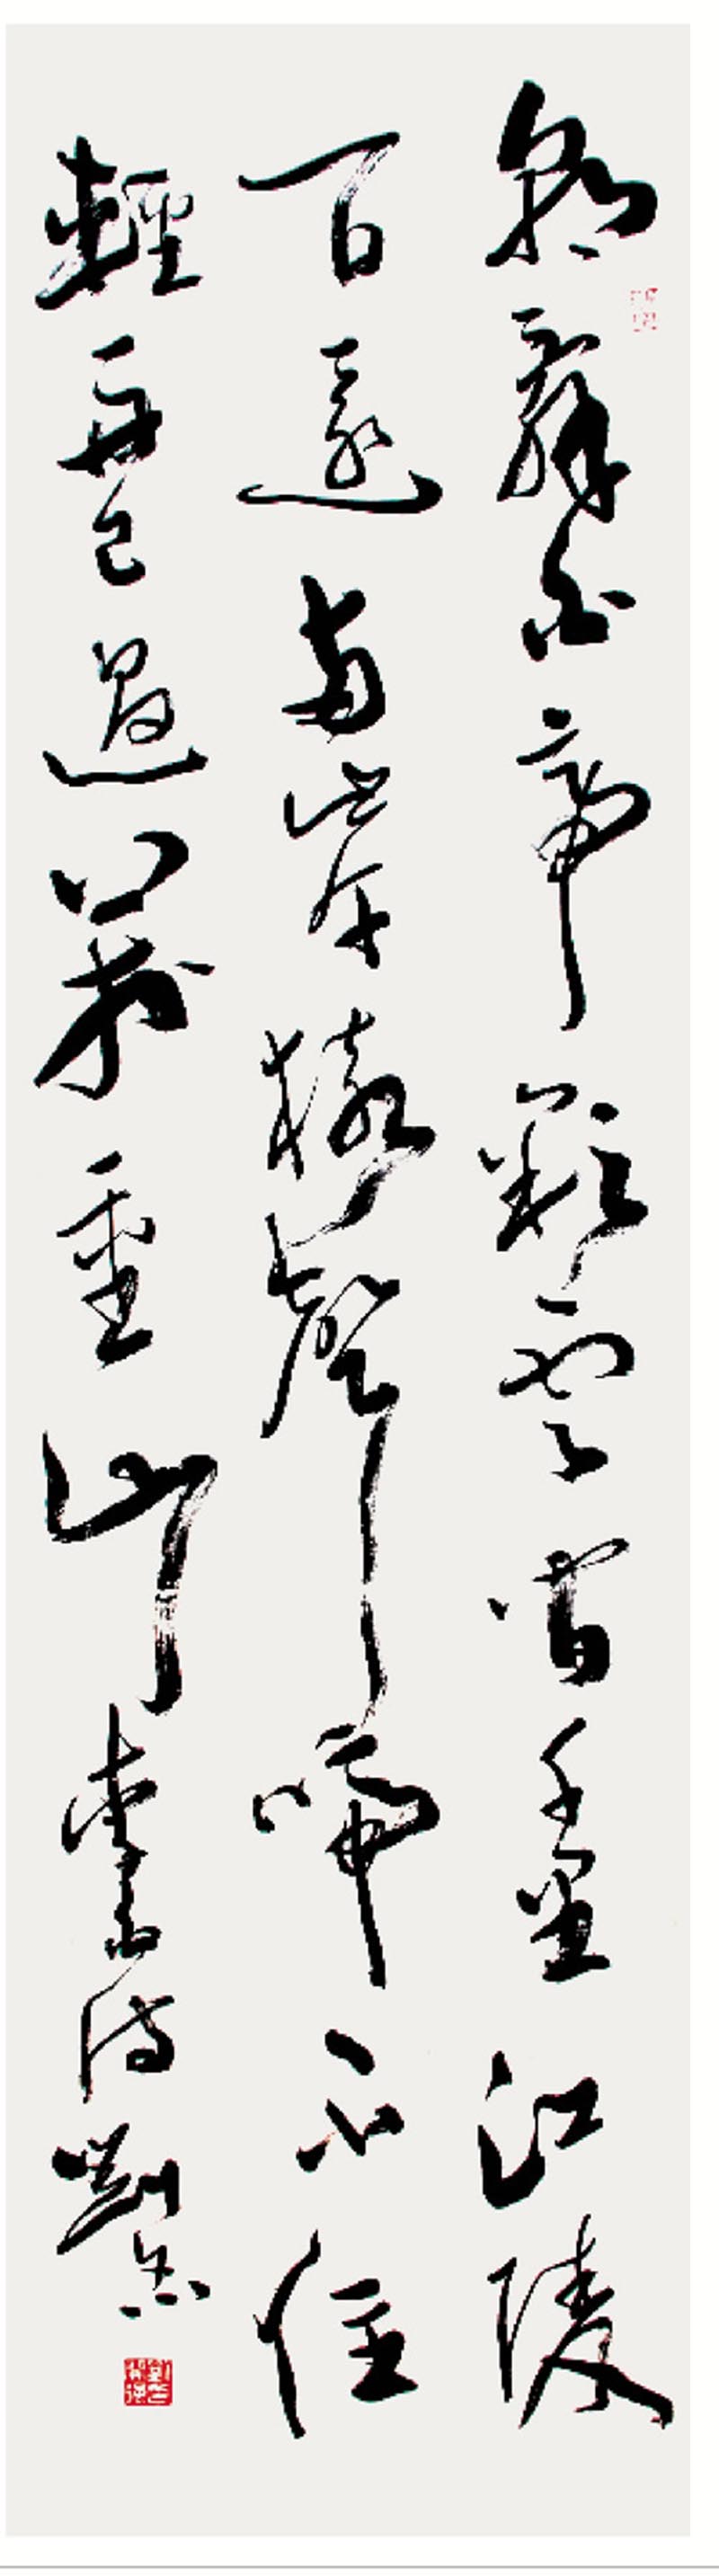 朝辭白帝彩雲間千里江陵
一日還兩岸猿聲啼不住
輕舟已過萬重山李白詩劉